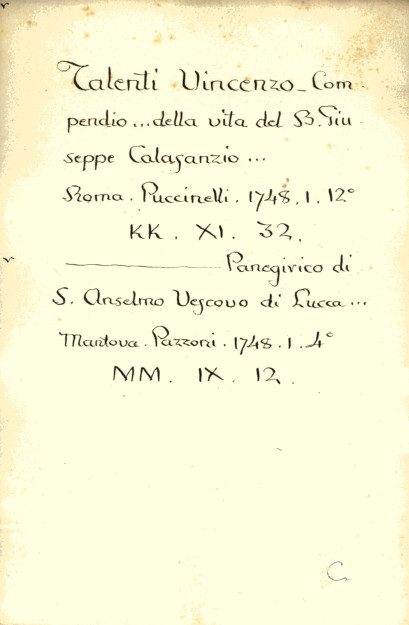 Talenti Vincenzo _ Com-
pendio ... della vita del B. Giu-
seppe Calasanzio ...
Roma. Puccinelli. 1748. 1. 12°
KK. XI. 32.
——— Panegirico di
S. Anselmo Vescovo di Lucca ...
Mantova. Pazzoni. 1748. 1. 4°
MM. IX. 12.
C.